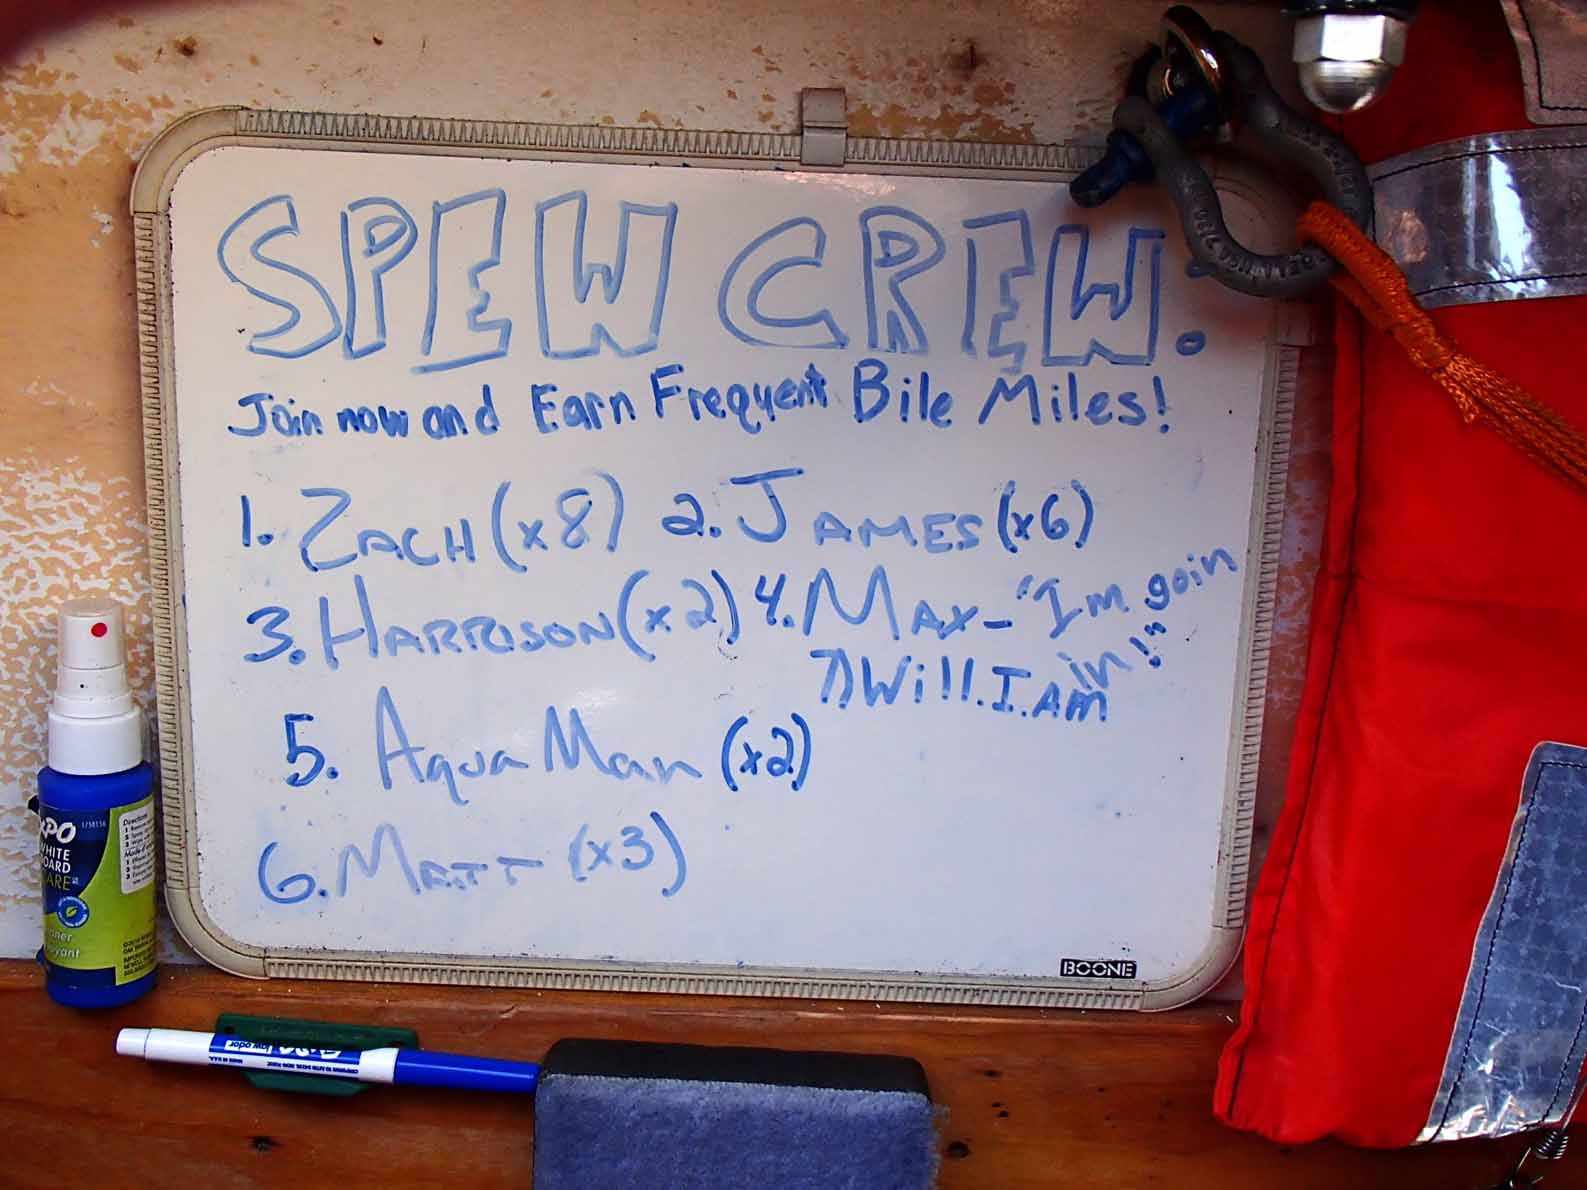 SPEW CREW.
Join now and Earn Frequent Bile Miles!
1. ZACH (x8) 2. JAMES (x6)
3. HARRISON (x2) 4. MAX - "I'm goin in!"
7) Will.I.Am
5. Aqua Man (x2)
6. MATT (x3)
BOONE
EXPO
WHITE
BOARD
CARE
1758156
Directions
low odor